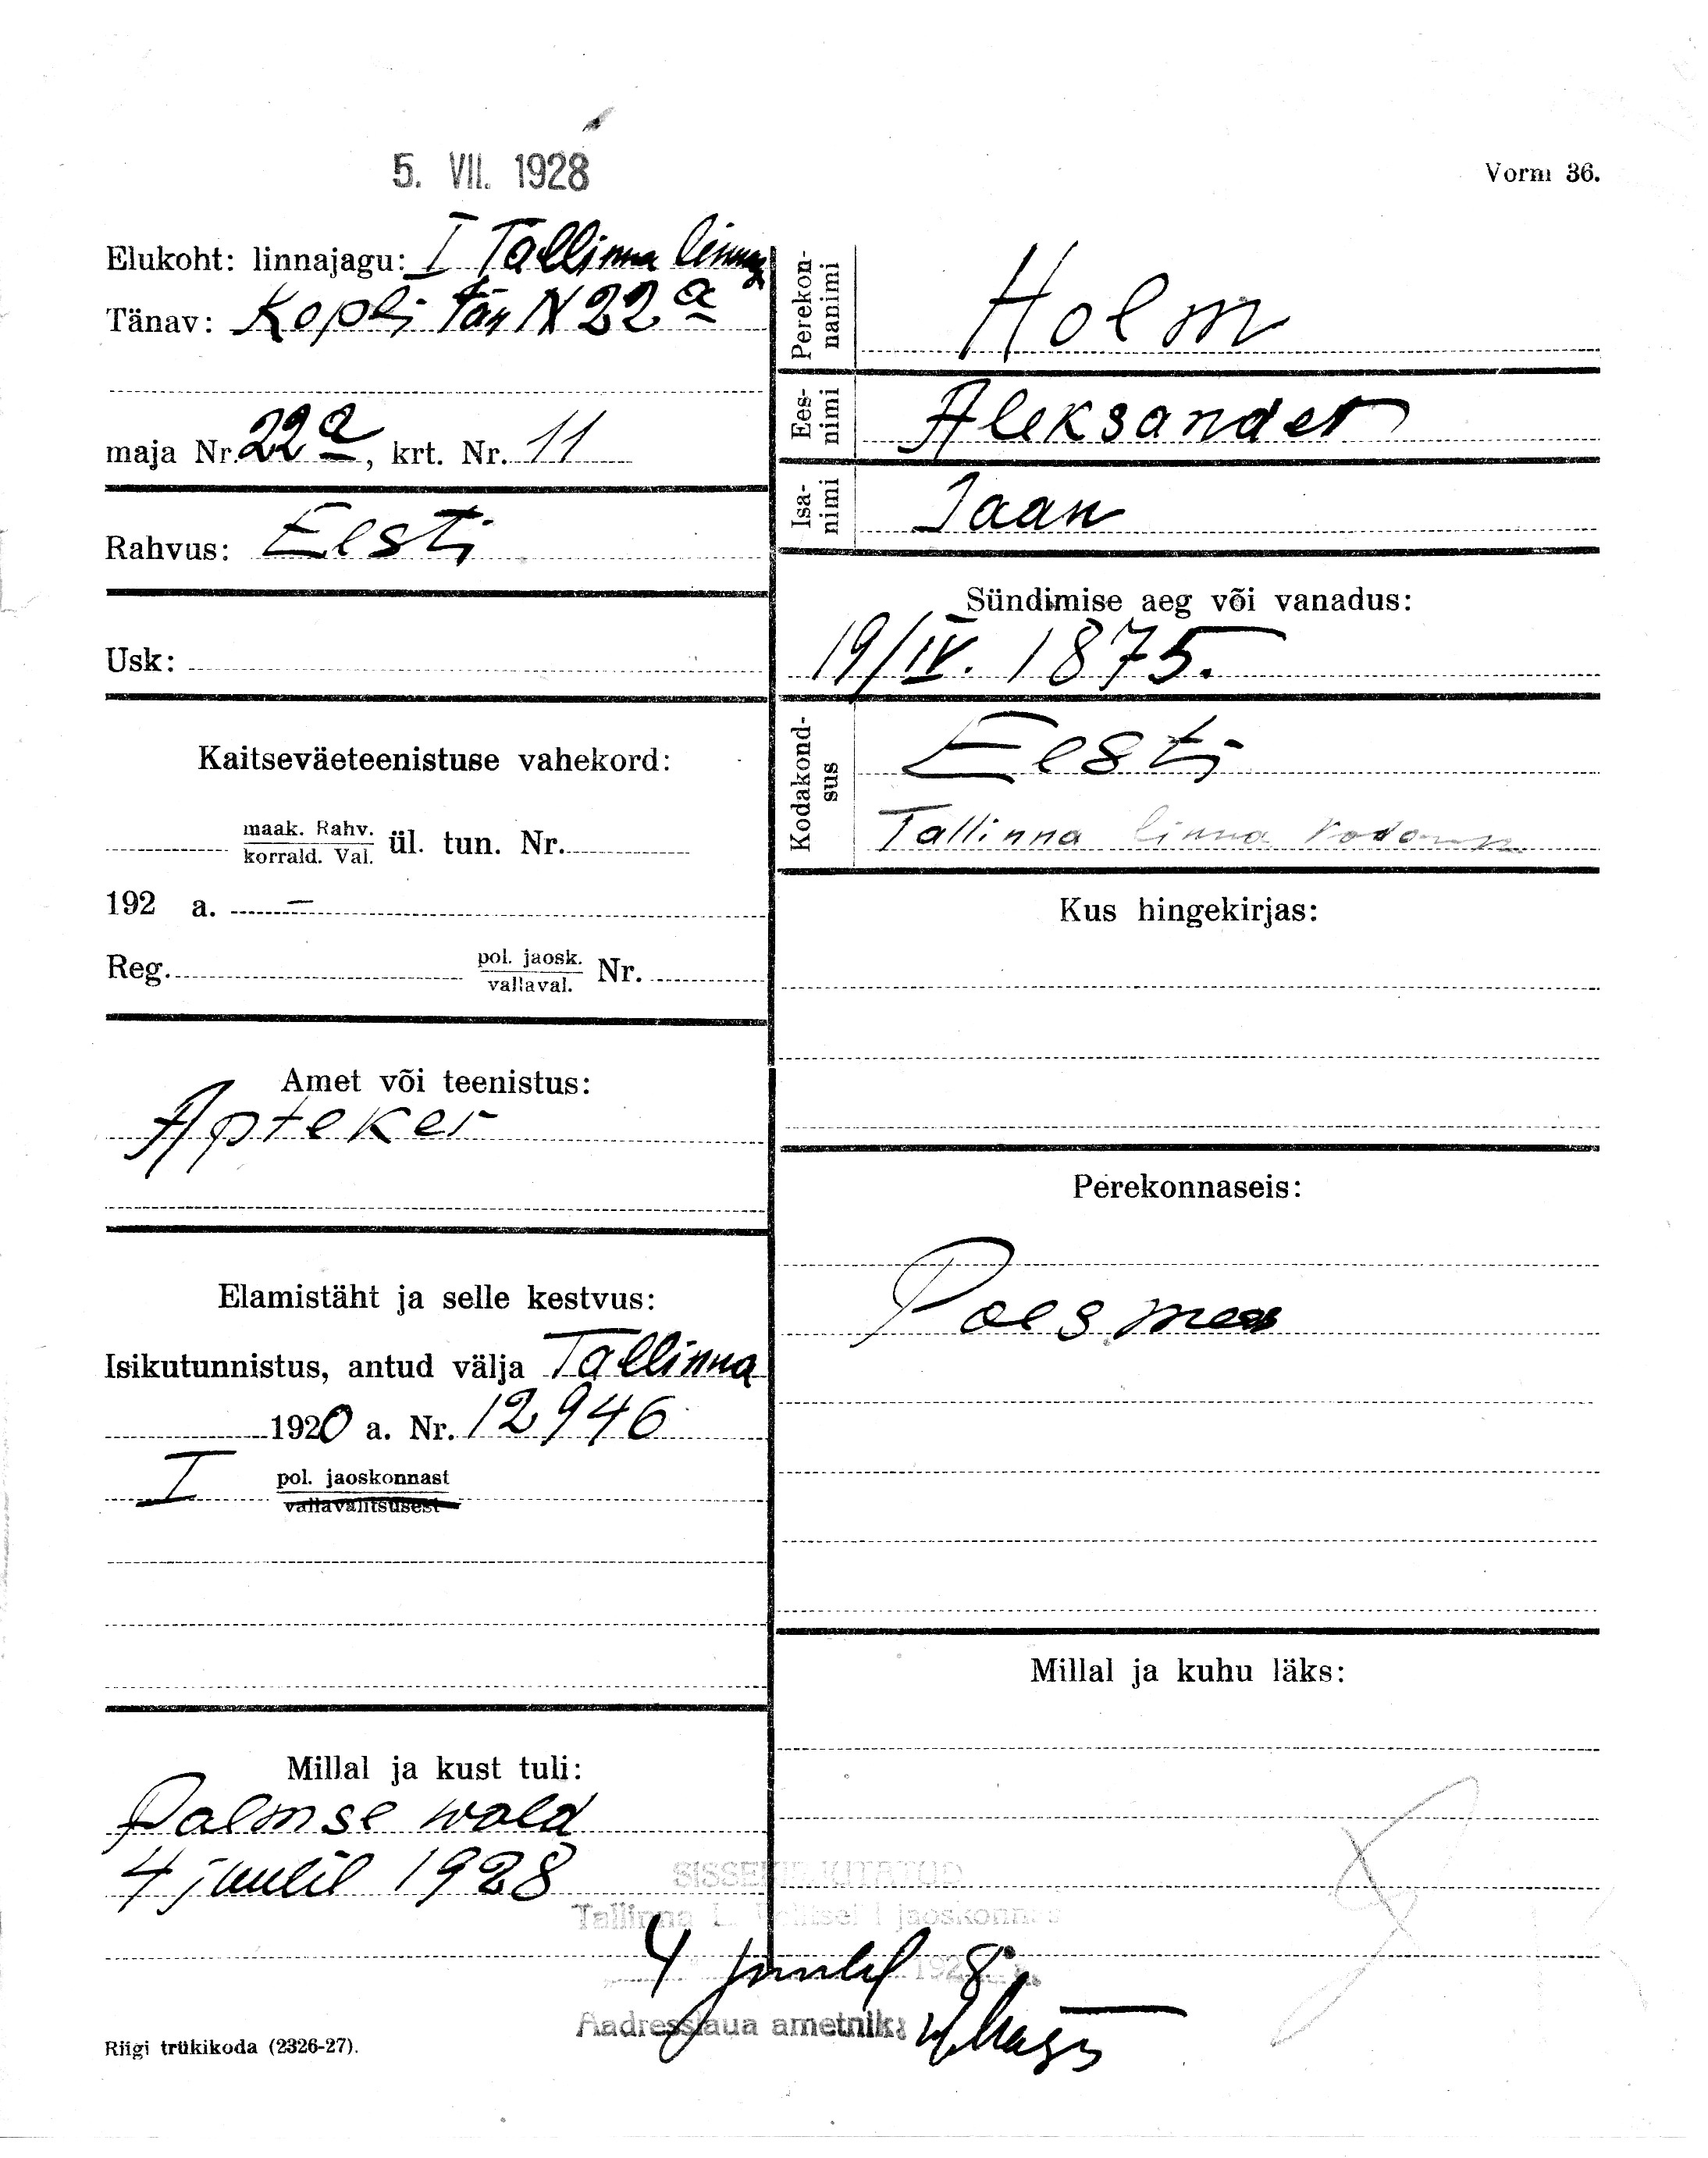 5. VII. 1928
Vorm 36.
Elukoht: linnajagu: I Tallinna
Tänav: Kopli tän N 22 a
maja Nr. 22 a, krt. Nr. 11
Rahvus: Eesti
Usk:
Kaitseväeteenistuse vahekord:
maak. Rahv.
korrald. Val. ül. tun. Nr.
192 a. –
Reg. pol. jaosk.
vallaval. Nr.
Amet või teenistus:
Apteker
Elamistäht ja selle kestvus:
Isikutunnistus, antud välja Tallinna
1920 a. Nr. 12946
I pol. jaoskonnast
vallavalitsusest
Millal ja kust tuli:
Palmse wald
4 juulil 1928
Riigi trükikoda (2326-27).
Perekon-
nanimi
Holm
Ees-
nimi
Aleksander
Isa-
nimi
Jaan
Sündimise aeg või vanadus:
19/IV. 1875.
Kodakond-
sus
Eesti
Tallinna linna
Kus hingekirjas:
Perekonnaseis:
Poesmees
Millal ja kuhu läks:
SISSEKIRJUTATUD
Tallinna L. Politsei I jaoskonnas
4 juulil 1928
Aadresslaua ametnik: